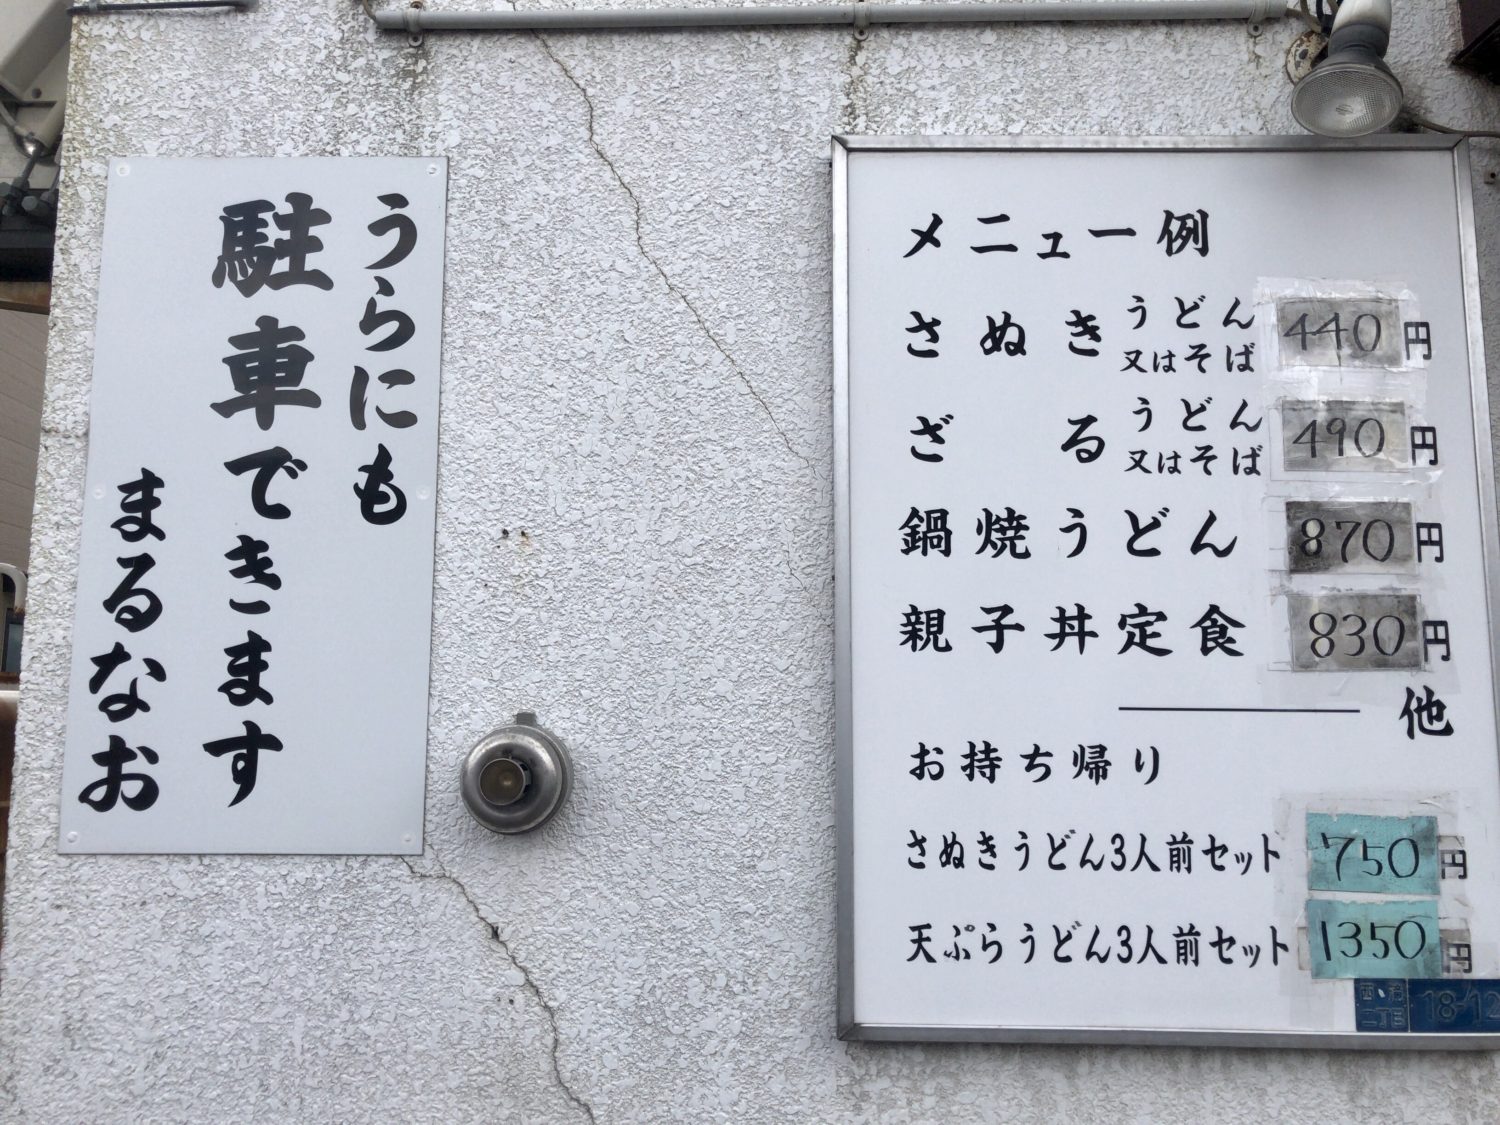 うらにも
駐車できます
まるなお
メニュー例
さぬき うどん 又はそば 440円
ざる うどん 又はそば 490円
鍋焼うどん 870円
親子丼定食 830円
他
お持ち帰り
さぬきうどん3人前セット 750円
天ぷらうどん3人前セット 1350円
二丁目 18-12